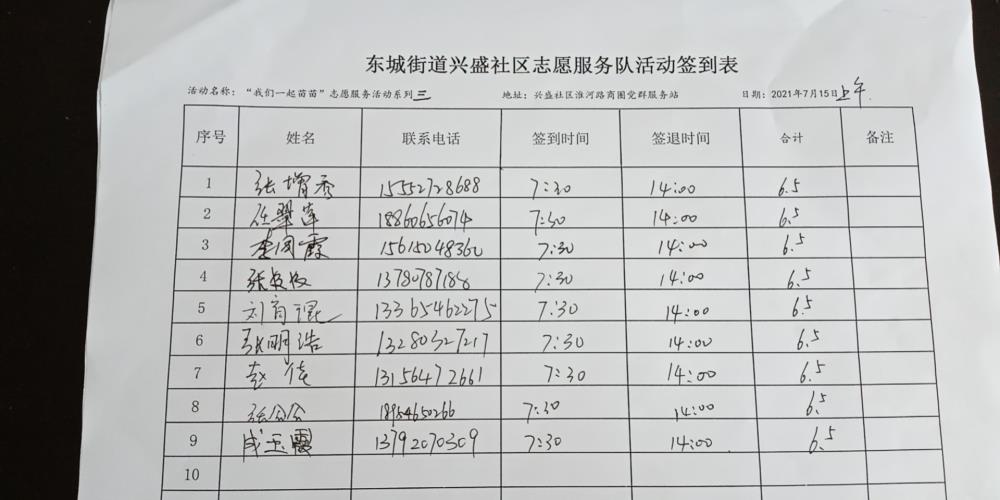 东城街道兴盛社区志愿服务队活动签到表
活动名称：“我们一起苗苗”志愿服务活动系列三 地址：兴盛社区淮河路商圈党群服务站 日期：2021年7月15日上午
序号 姓名 联系电话 签到时间 签退时间 合计 备注
1 张增秀 15552728688 7:30 14:00 6.5
2 任翠莲 18860656074 7:30 14:00 6.5
3 李闰霞 15615048360 7:30 14:00 6.5
4 张 13780787188 7:30 14:00 6.5
5 刘 13365462275 7:30 14:00 6.5
6 张明浩 13280327217 7:30 14:00 6.5
7 赵倩 13156472661 7:30 14:00 6.5
8 张 18954650266 7:30 14:00 6.5
9 成玉霞 13792070309 7:30 14:00 6.5
10